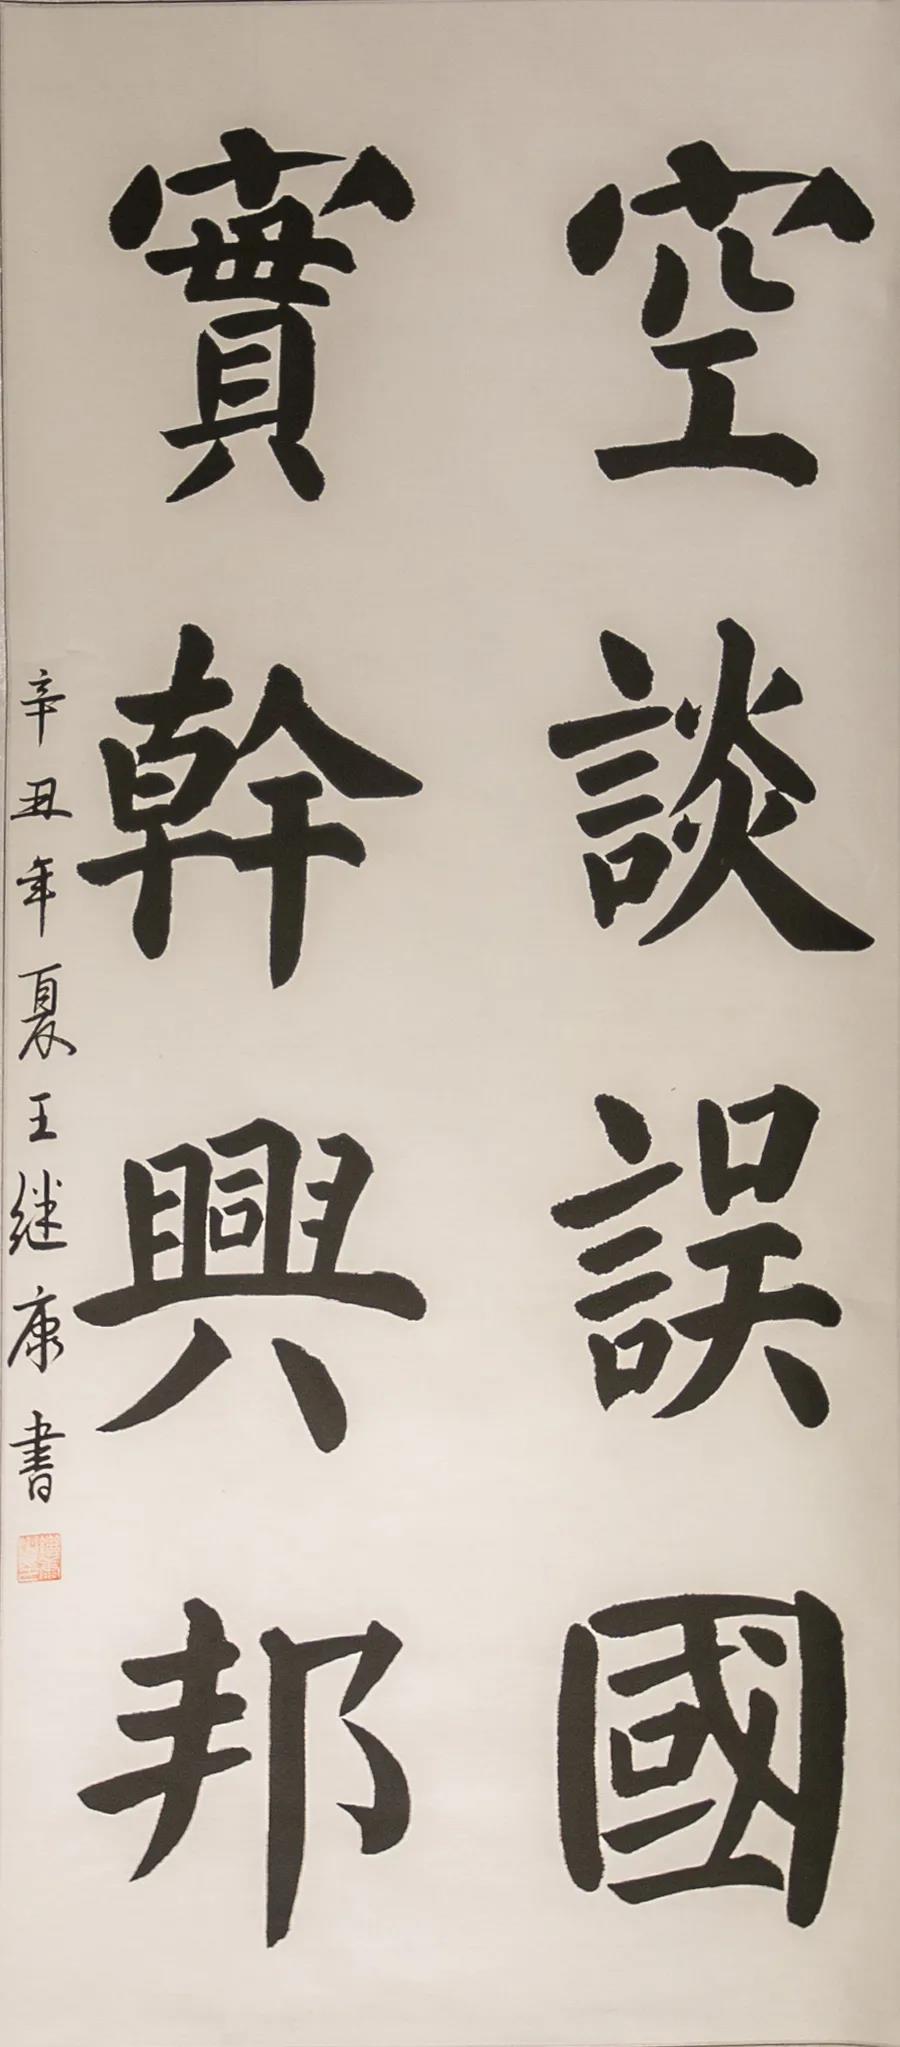 空談誤國
實幹興邦
辛丑年夏王继康書